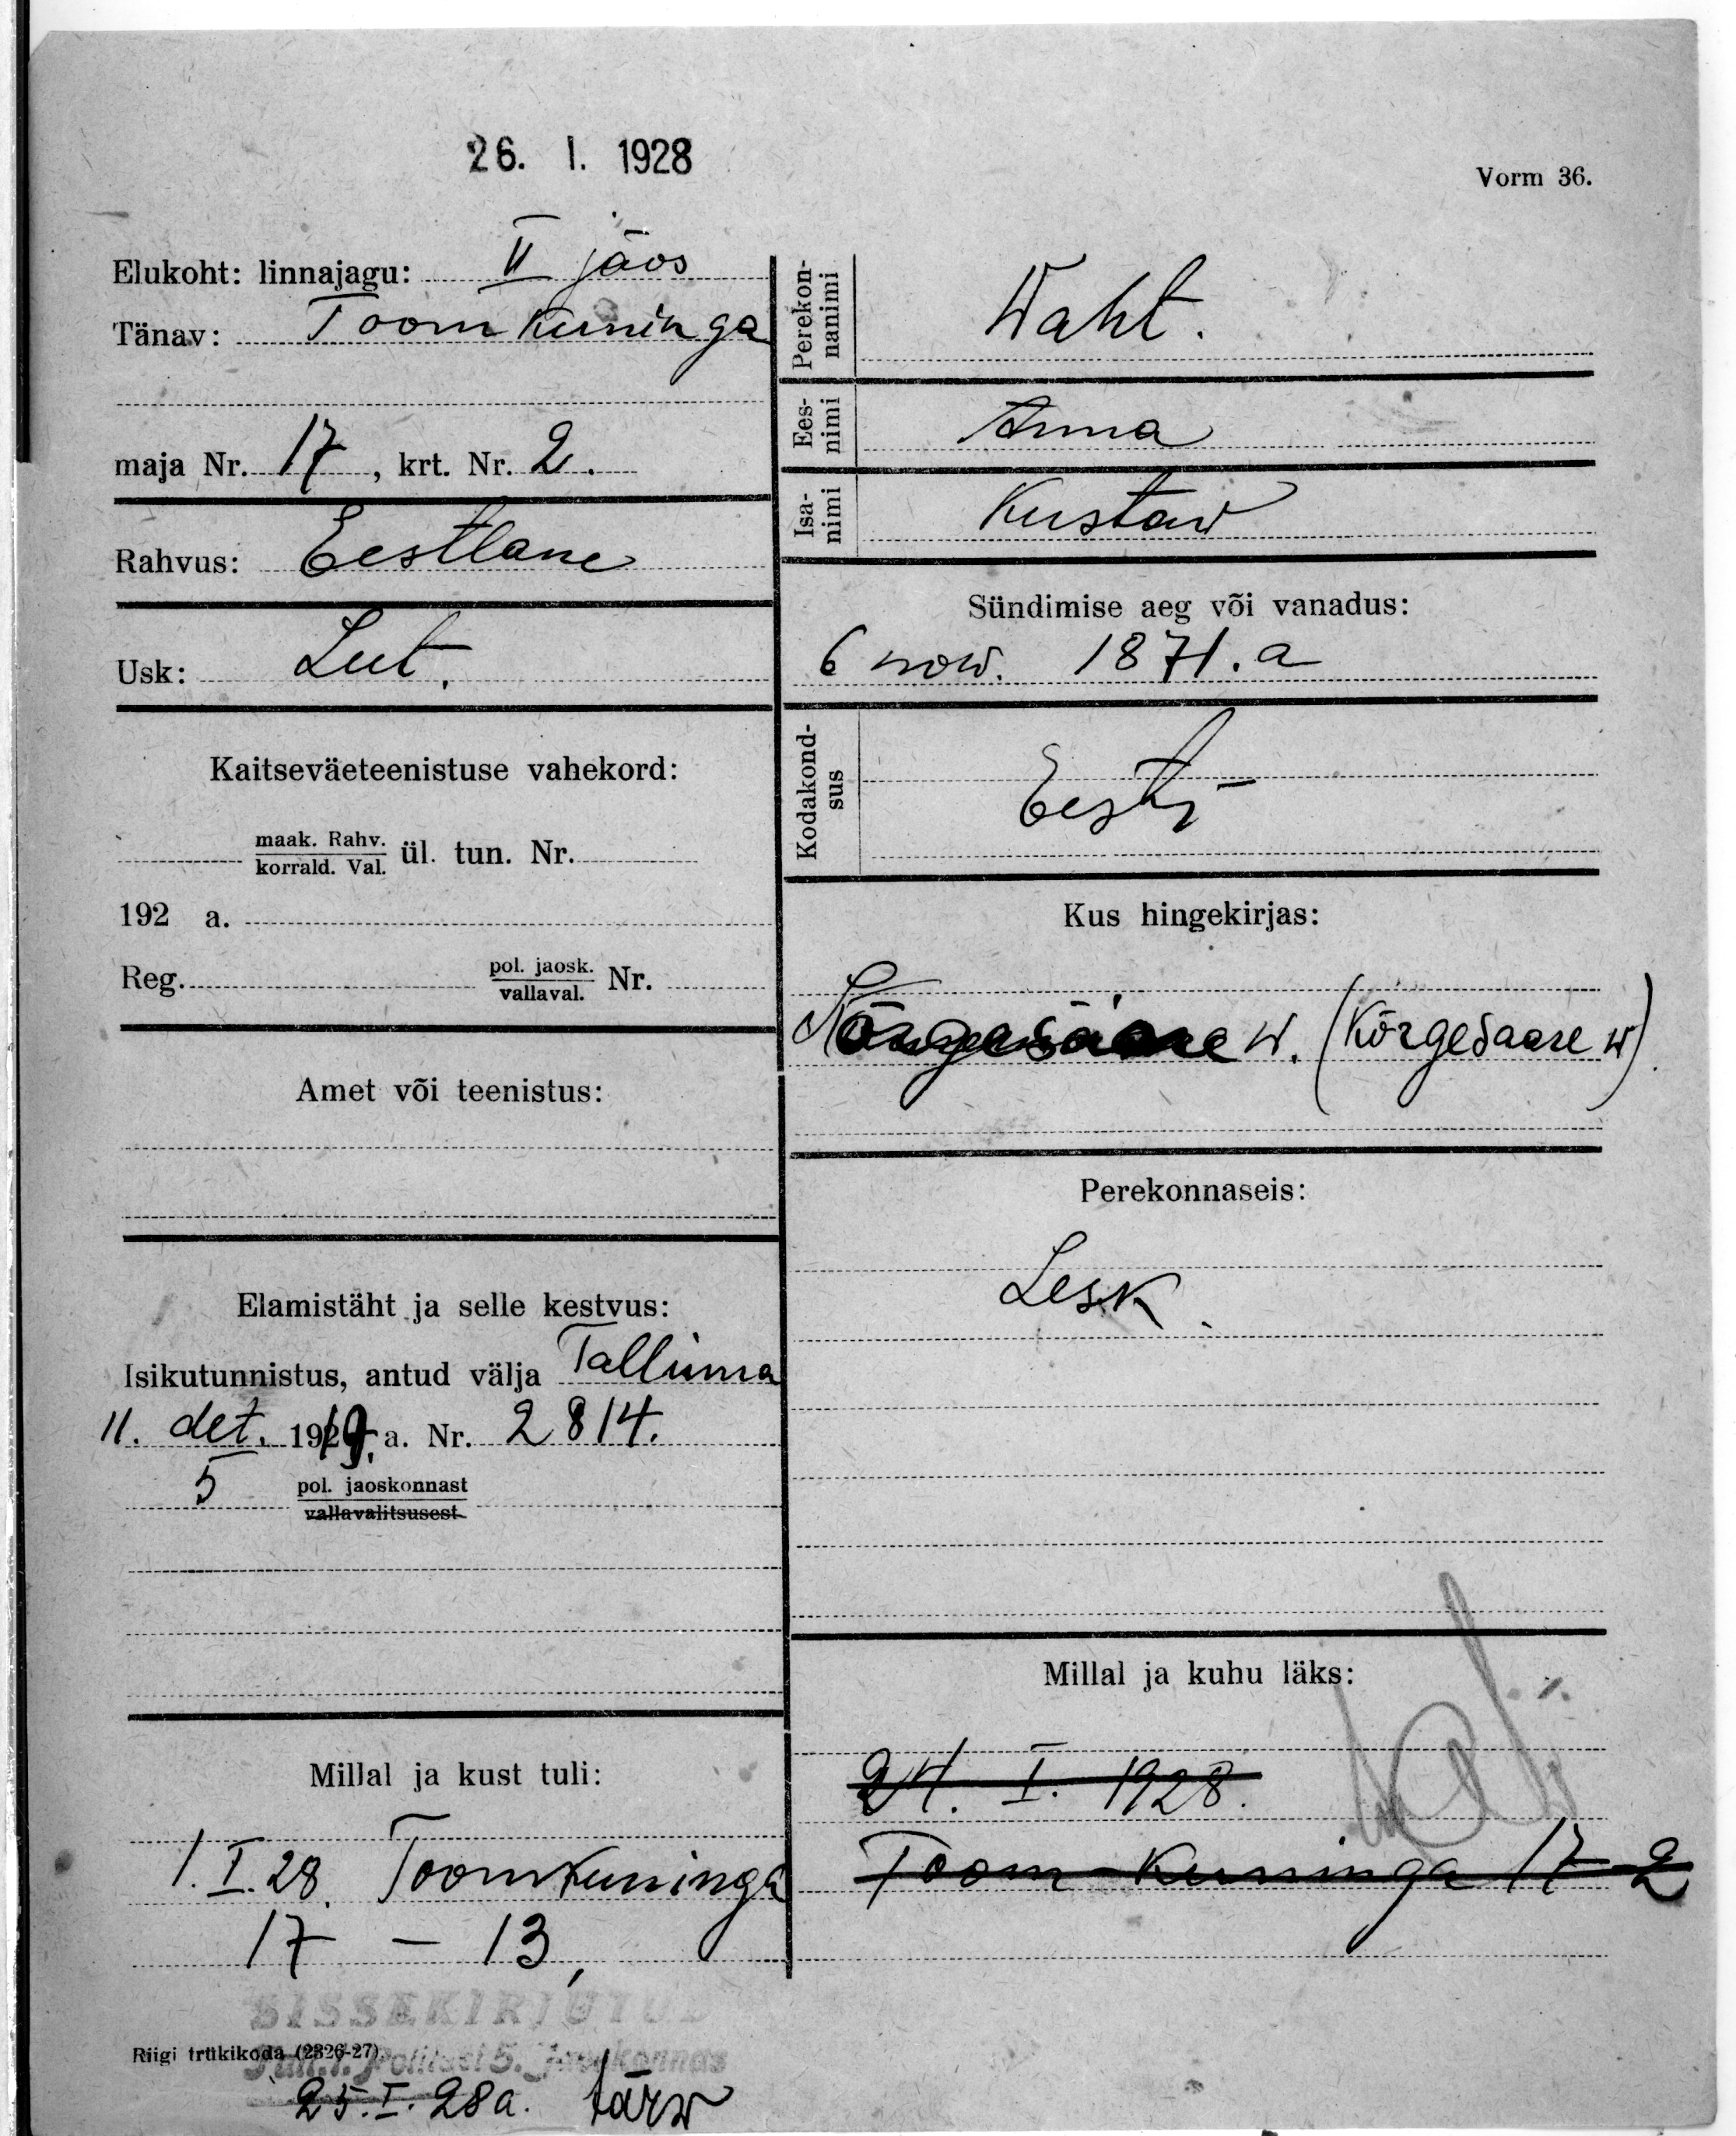 26. I. 1928
Vorm 36.
Elukoht: linnajagu: II jaos
Tänav: Toom Kuninga
maja Nr. 17, krt. Nr. 2.
Rahvus: Eestlane
Usk: Lut.
Kaitseväeteenistuse vahekord:
maak. Rahv. ül. tun. Nr.
korrald. Val.
192 a.
Reg. pol. jaosk. Nr.
vallaval.
Amet või teenistus:
Elamistäht ja selle kestvus:
Isikutunnistus, antud välja Tallinna
11. det. 1919. a. Nr. 2814.
5 pol. jaoskonnast
vallavalitsusest
Millal ja kust tuli:
1.I.28. Toomkuninga
17 - 13,
SISSEKIRJUTUD
Riigi trükikoda (2326-27)
Politsei 5. jaoskonnas
25.I.28a.
Perekon-
nanimi
Waht.
Ees-
nimi
Anna
Isa-
nimi
Kustaw
Sündimise aeg või vanadus:
6 now. 1871.a
Kodakond-
sus
Eesti
Kus hingekirjas:
w. (Kõrgesaare w)
Perekonnaseis:
Lesk.
Millal ja kuhu läks:
24. I. 1928.
Toom-Kuninga 17-2